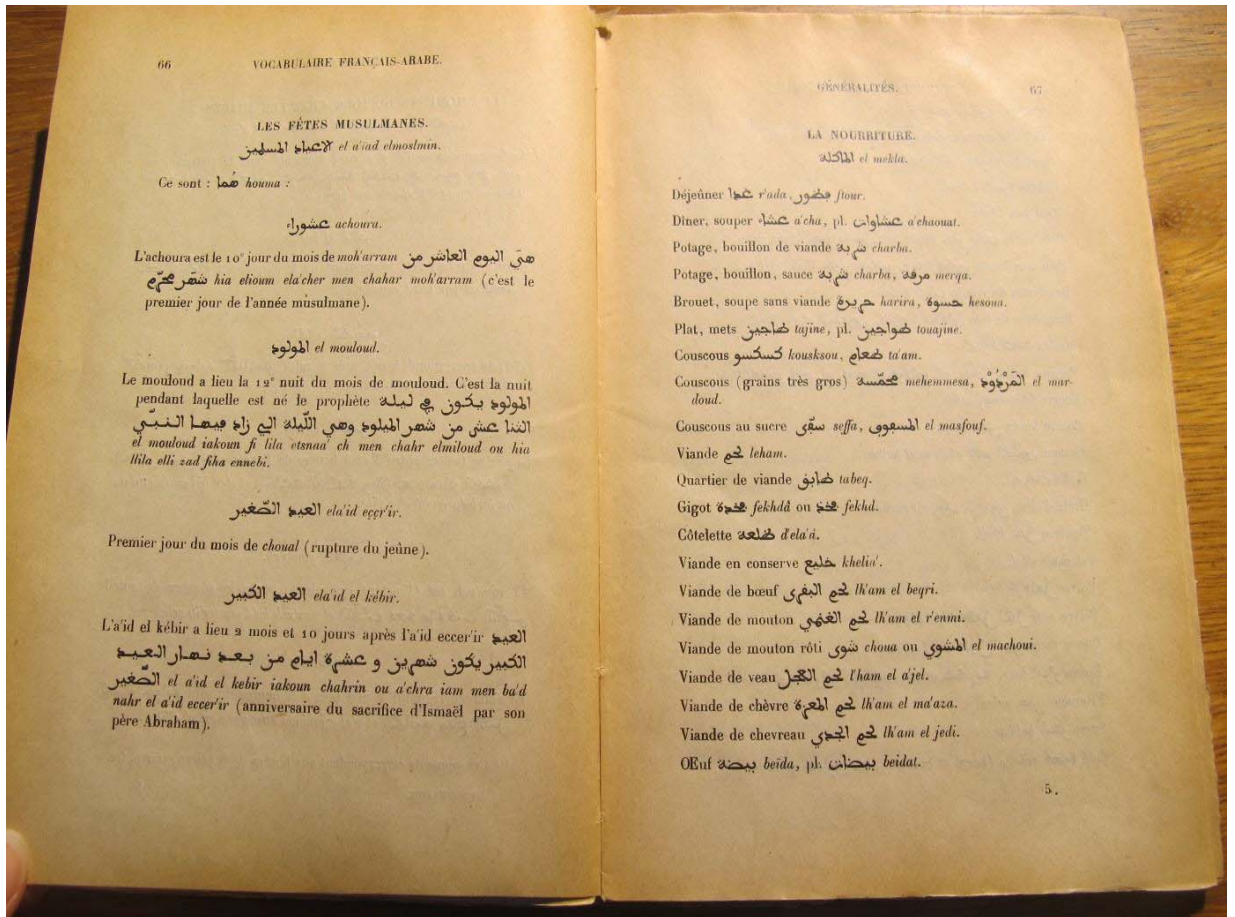 66
VOCABULAIRE FRANÇAIS-ARABE.
LES FÊTES MUSULMANES.
لاعياد المسلمين el a'ïad elmoslmin.
Ce sont : هُما houma :
عشوراء achoura.
L'achoura est le 10e jour du mois de moh'arram هىَ اليوم العاشر من
شهَر محرّم hia elioum ela'cher men chahar moh'arram (c'est le
premier jour de l'année musulmane).
المولود el mouloud.
Le mouloud a lieu la 12e nuit du mois de mouloud. C'est la nuit
pendant laquelle est né le prophète المولود يكون ڢي ليلة
اثنا عشر من شهر الميلود وهي اللّيلة الي زاد ڢيها النبّي
el mouloud iakoun fi lila etsnaa' ch men chahr elmiloud ou hia
llila elli zad fiha ennebi.
العيد الصّغير ela'id eççr'ir.
Premier jour du mois de choual (rupture du jeûne).
العيد الكبير ela'id el kébir.
L'a'ïd el kébir a lieu 2 mois et 10 jours après l'a'ïd eccer'ir العيد
الكبير يكون شهرين و عشرة ايام من بعد نهار العيد
الصّغير el a'id el kebir iakoun chahrin ou a'chra iam men ba'd
nahr el a'id eccer'ir (anniversaire du sacrifice d'Ismaël par son
père Abraham).
GÉNÉRALITÉS.
67
LA NOURRITURE.
الماكلة el mekla.
Déjeûner غدا r'ada, ڢطور ftour.
Dîner, souper عشاء a'cha, pl. عشاوات a'chaouat.
Potage, bouillon de viande شربة charba.
Potage, bouillon, sauce شربة charba, مرفة merqa.
Brouet, soupe sans viande حريرة harira, حسوة hesoua.
Plat, mets طاجين tajine, pl. طواجين touajine.
Couscous كسكسو kousksou, طعام ta'am.
Couscous (grains très gros) محمّسة mehemmesa, المَرْدُوْد el mar-
doud.
Couscous au sucre سڢّى seffa, المسڢوڢ el masfouf.
Viande لحم leham.
Quartier de viande طابڧ tabeq.
Gigot ڢخدة fekhdâ ou ڢخذ fekhd.
Côtelette ضلعة d'ela'â.
Viande en conserve خليع khelia'.
Viande de bœuf لحم البڧري lh'am el beqri.
Viande de mouton لحم الغنمي lh'am el r'enmi.
Viande de mouton rôti شوى choua ou المشوي el machoui.
Viande de veau لحم العجل l'ham el a'jel.
Viande de chèvre لحم المعزة lh'am el ma'aza.
Viande de chevreau لحم الجدي lh'am el jedi.
Œuf بيضة beïda, pl. بيضات beidat.
5.